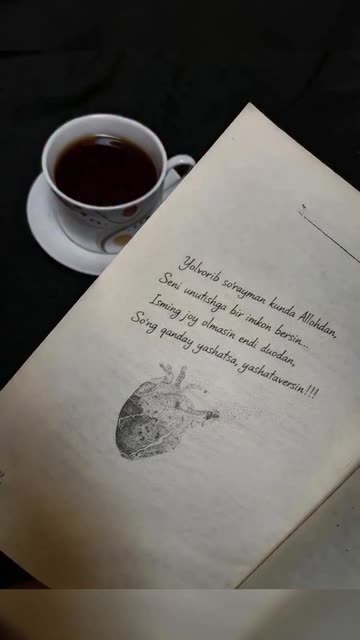 Yolvorib so'rayman kunda Allohdan,
Seni unutishga bir imkon bersin...
Isming joy olmasin endi duodan,
So'ng qanday yashatsa, yashataversin!!!